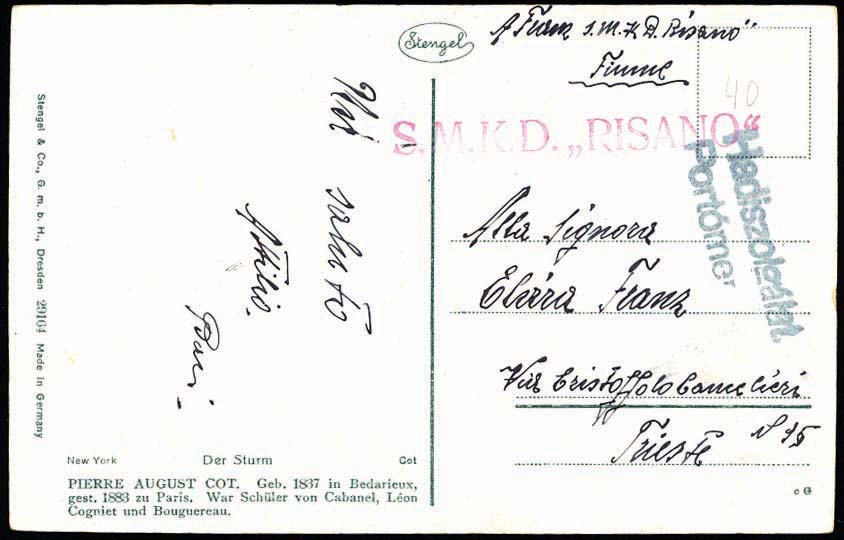 Stengel
A Franz S.M.K.D. Risano"
Fiume
40
S.M.K.D. „RISANO“
Hadiszolgálat.
Portómentes
Alla Signora
Elvira Franz
Via Cristoffolo Cancelieri
N 15
Trieste
saluto
Attilio.
Baci.
Stengel & Co., G. m. b. H., Dresden 29164 Made in Germany
New York Der Sturm Cot
PIERRE AUGUST COT. Geb. 1837 in Bedarieux,
gest. 1883 zu Paris. War Schüler von Cabanel, Léon
Cogniet und Bouguereau.
c G